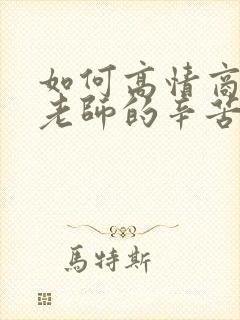 如何高情商
老師的辛苦
馬特斯